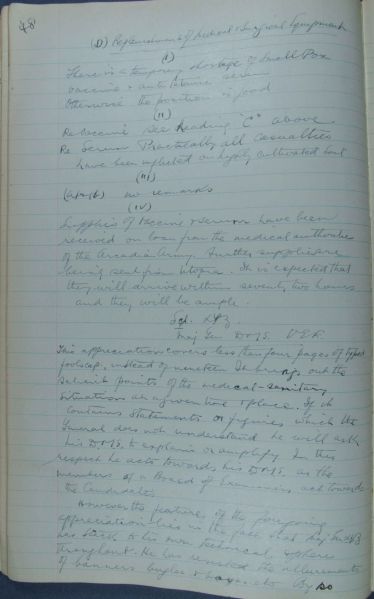 48
(D) Replenishment of Medical & Surgical Equipment
(I)
There is a temporary shortage of Small Pox
vaccine & anti tetanic serum
Otherwise the position is good
(II)
Re Vaccine see heading "C" above
Re Serum Practically all casualties
have been inflicted on highly cultivated soil
(III)
no remarks
(IV)
Supplies of Vaccine & Serum have been
received on loan from the medical authorities
of the Arcadian Army. Further supplies are
being sent from Utopia. It is expected that
they will arrive within seventy two hours
and they will be ample.
Sd. XYZ
Maj Gen DMS. U.E.F.
This appreciation covers less than four pages of typed
foolscap, instead of nineteen. It brings out the
salient points of the medical-sanitary
situation at a given time & place. If it
contains statements or figures which the
General does not understand he will ask
his DMS. to explain or amplify. In this
respect he acts towards his DMS. as the
members of a Board of Examiners act towards
the Candidates.
However the feature of the foregoing
appreciation lies in the fact that Maj Gen XYZ
has stuck to his own technical sphere
throughout. He has resisted the allurements
of banners bugles & etc. By so